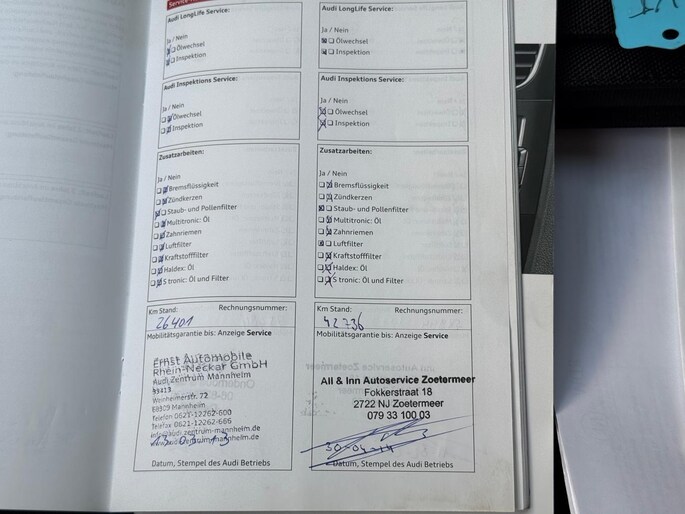 Audi LongLife Service:
Ja / Nein
Ölwechsel
Inspektion
Audi Inspektions Service:
Ja / Nein
Ölwechsel
Inspektion
Zusatzarbeiten:
Ja / Nein
Bremsflüssigkeit
Zündkerzen
Staub- und Pollenfilter
Multitronic: Öl
Zahnriemen
Luftfilter
Kraftstofffilter
Haldex: Öl
S tronic: Öl und Filter
Km Stand: Rechnungsnummer:
26401
Mobilitätsgarantie bis: Anzeige Service
Ernst Automobile
Rhein-Neckar GmbH
Audi Zentrum Mannheim
Weinheimerstr. 72
68309 Mannheim
Telefon 0621-12262-600
Telefax 0621-12262-666
Datum, Stempel des Audi Betriebs
Audi LongLife Service:
Ja / Nein
Ölwechsel
Inspektion
Audi Inspektions Service:
Ja / Nein
Ölwechsel
Inspektion
Zusatzarbeiten:
Ja / Nein
Bremsflüssigkeit
Zündkerzen
Staub- und Pollenfilter
Multitronic: Öl
Zahnriemen
Luftfilter
Kraftstofffilter
Haldex: Öl
S tronic: Öl und Filter
Km Stand: Rechnungsnummer:
42736
Mobilitätsgarantie bis: Anzeige Service
All & Inn Autoservice Zoetermeer
Fokkerstraat 18
2722 NJ Zoetermeer
079 33 100 03
30-04-14
Datum, Stempel des Audi Betriebs